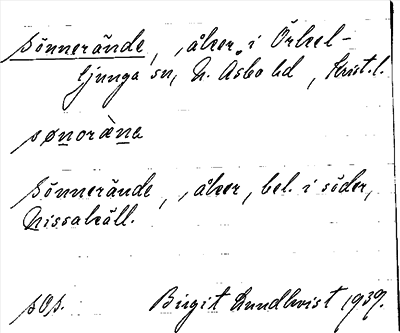 Sönnerände, åker, i Örkel-
ljunga sn, N. Åsbo hd, Krist. l.
sønoràna
Sönnerände, åker, bel. i söder,
Nissakäll.
sOp. Birgit Lundkvist 1939.